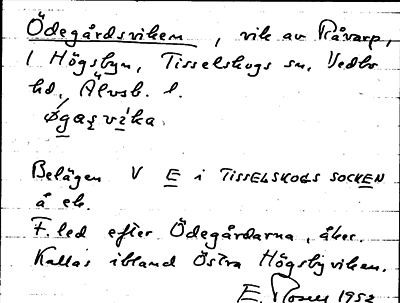 Ödegårdsviken, vik av Råvarp,
i Högsbyn, Tisselskogs sn, Vedbo
hd, Älvsb. l.
øgasvika.
Belägen V E i TISSELSKOGS SOCKEN
å ek.
F. led efter Ödegårdarna, åker.
Kallas ibland Östra Högsbyviken.
E. 1952